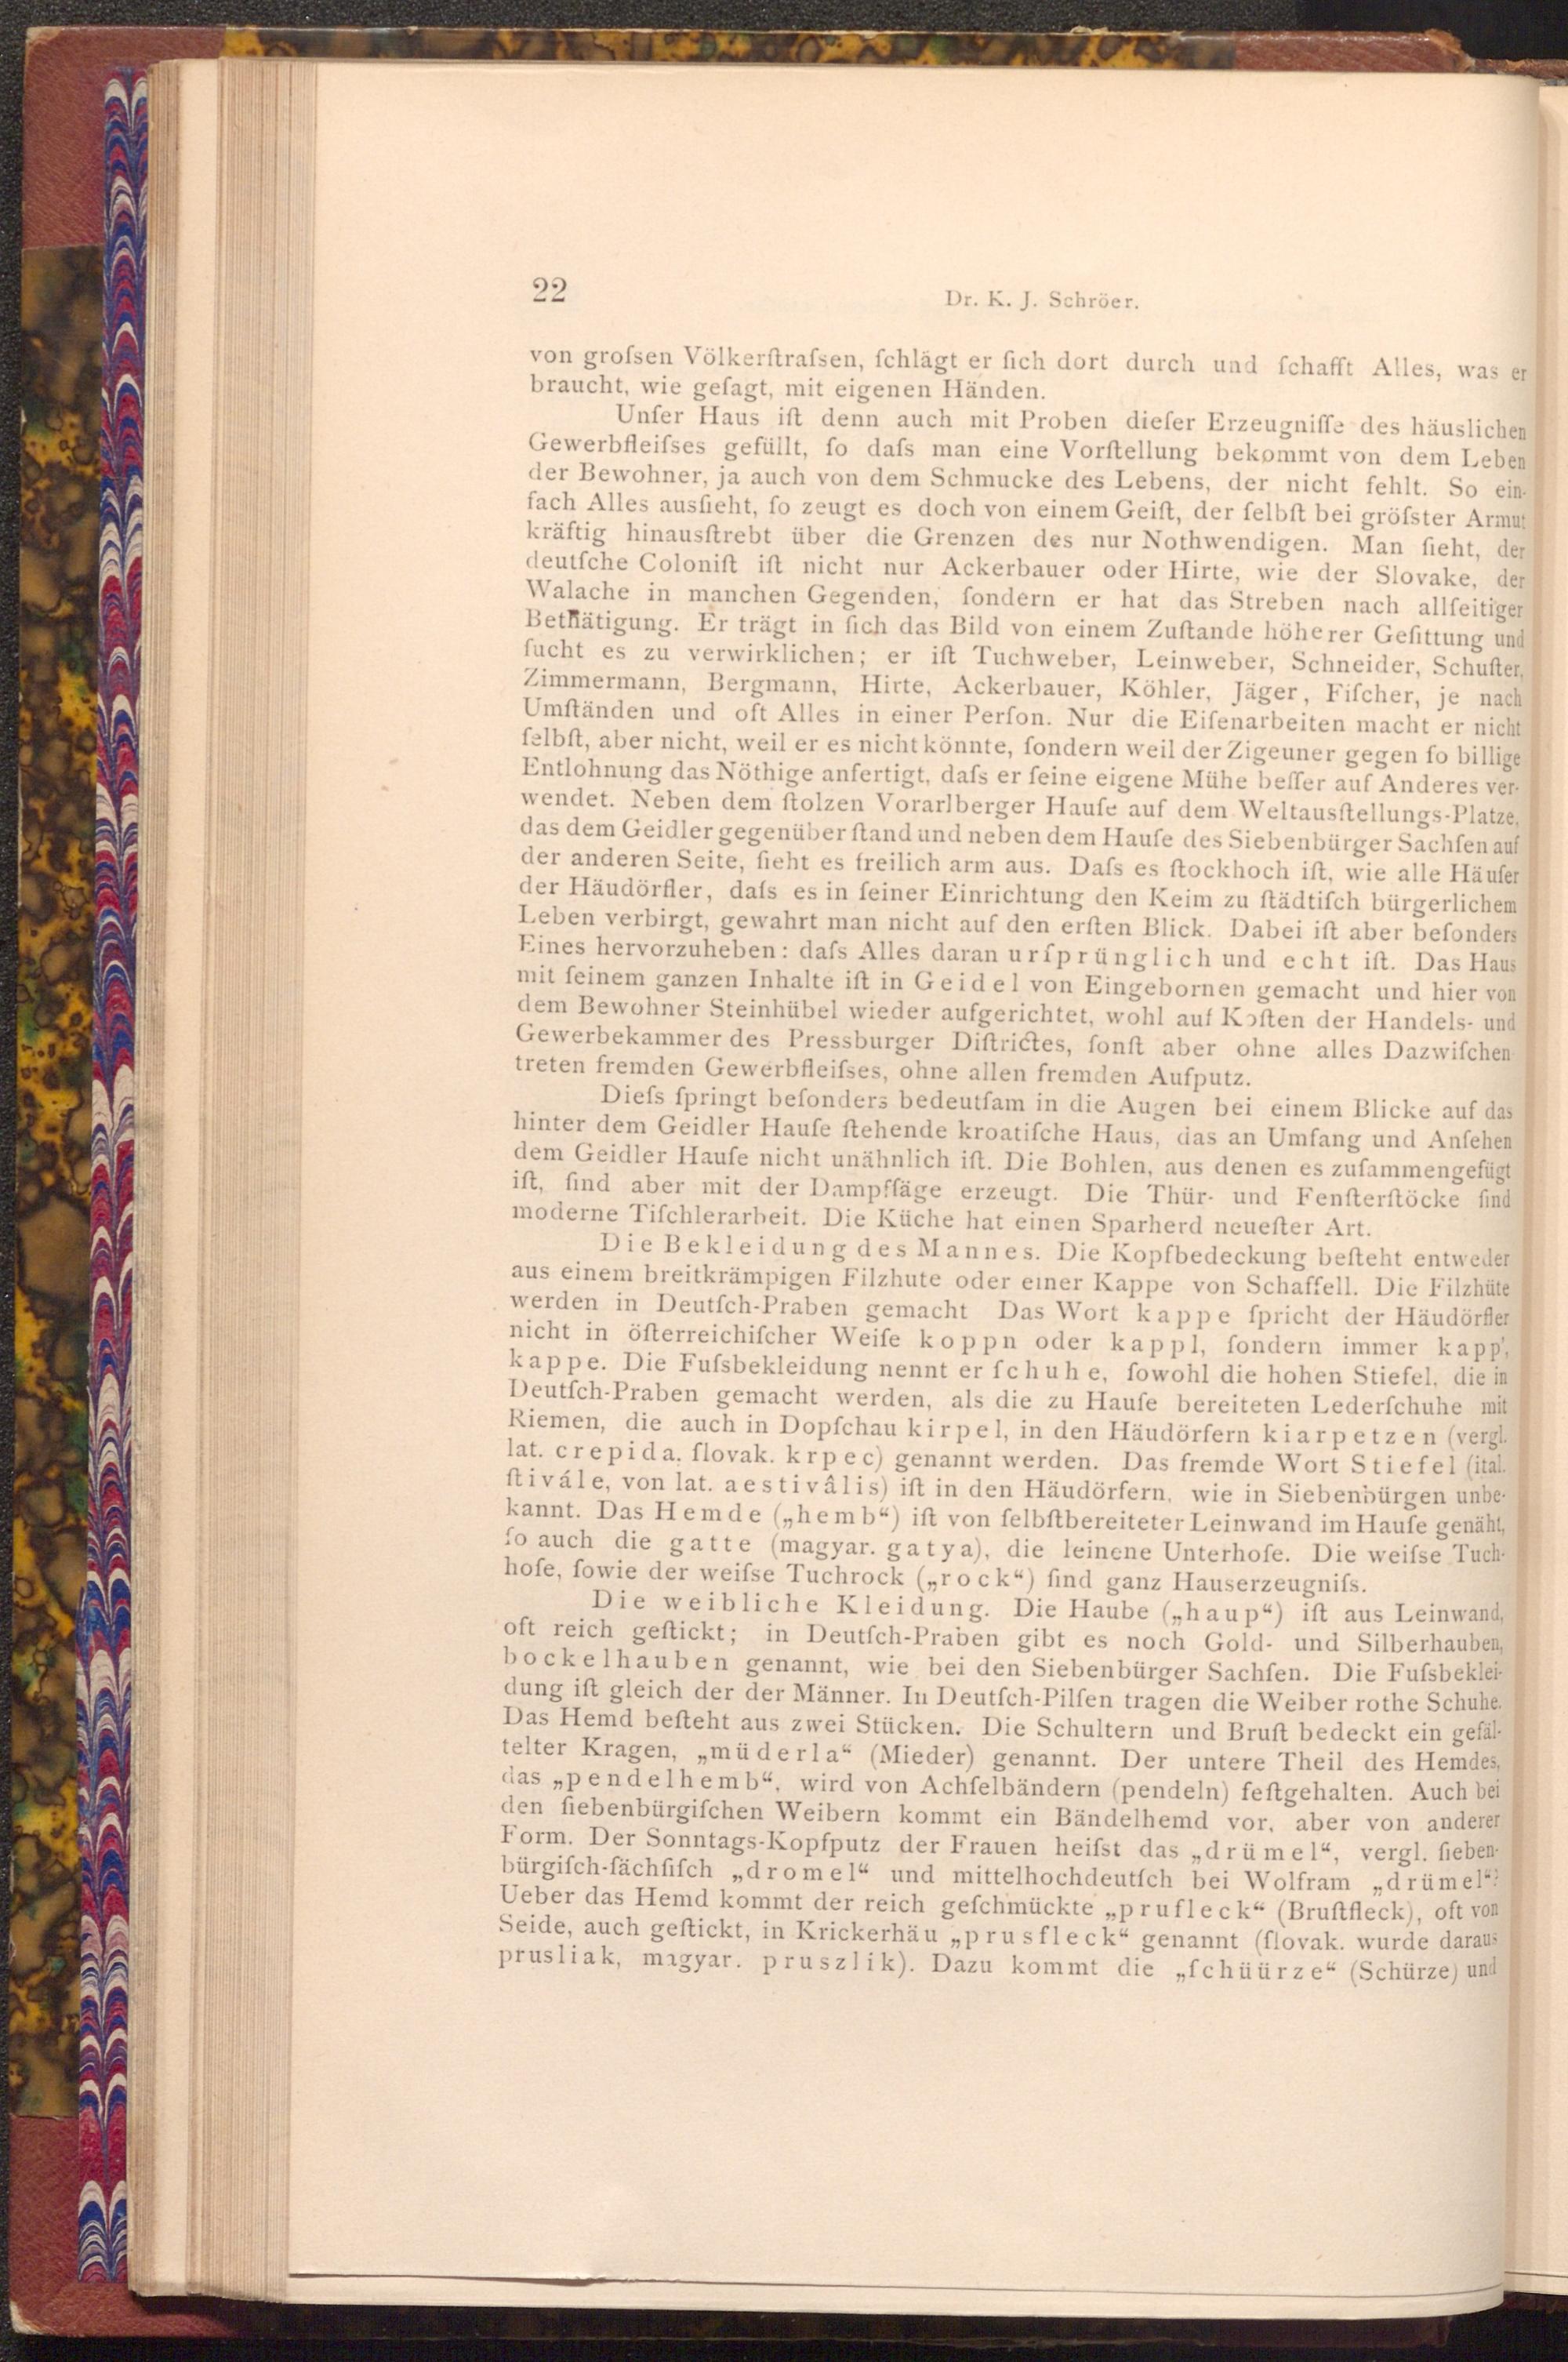 22
Dr. K. J. Schröer.
von groſsen Völkerſtraſsen, ſchlägt er ſich dort durch und ſchafft Alles, was er
braucht, wie geſagt, mit eigenen Händen.
Unſer Haus iſt denn auch mit Proben dieſer Erzeugniſſe des häuslichen
Gewerbfleiſses gefüllt, ſo daſs man eine Vorſtellung bekommt von dem Leben
der Bewohner, ja auch von dem Schmucke des Lebens, der nicht fehlt. So ein-
fach Alles ausſieht, ſo zeugt es doch von einem Geiſt, der ſelbſt bei gröſster Armut
kräftig hinausſtrebt über die Grenzen des nur Nothwendigen. Man ſieht, der
deutſche Coloniſt iſt nicht nur Ackerbauer oder Hirte, wie der Slovake, der
Walache in manchen Gegenden, ſondern er hat das Streben nach allſeitiger
Bethätigung. Er trägt in ſich das Bild von einem Zuſtande höherer Geſittung und
ſucht es zu verwirklichen; er iſt Tuchweber, Leinweber, Schneider, Schuſter,
Zimmermann, Bergmann, Hirte, Ackerbauer, Köhler, Jäger, Fiſcher, je nach
Umſtänden und oft Alles in einer Perſon. Nur die Eiſenarbeiten macht er nicht
ſelbſt, aber nicht, weil er es nicht könnte, ſondern weil der Zigeuner gegen ſo billige
Entlohnung das Nöthige anfertigt, daſs er ſeine eigene Mühe beſſer auf Anderes ver-
wendet. Neben dem ſtolzen Vorarlberger Hauſe auf dem Weltausſtellungs-Platze,
das dem Geidler gegenüber ſtand und neben dem Hauſe des Siebenbürger Sachſen auf
der anderen Seite, ſieht es freilich arm aus. Daſs es ſtockhoch iſt, wie alle Häuſer
der Häudörfler, daſs es in ſeiner Einrichtung den Keim zu ſtädtiſch bürgerlichem
Leben verbirgt, gewahrt man nicht auf den erſten Blick. Dabei iſt aber beſonders
Eines hervorzuheben: daſs Alles daran urſprünglich und echt iſt. Das Haus
mit ſeinem ganzen Inhalte iſt in Geidel von Eingebornen gemacht und hier von
dem Bewohner Steinhübel wieder aufgerichtet, wohl auf Koſten der Handels- und
Gewerbekammer des Pressburger Diſtrictes, ſonſt aber ohne alles Dazwiſchen
treten fremden Gewerbfleiſses, ohne allen fremden Aufputz.
Dieſs ſpringt beſonders bedeutſam in die Augen bei einem Blicke auf das
hinter dem Geidler Hauſe ſtehende kroatiſche Haus, das an Umfang und Anſehen
dem Geidler Hauſe nicht unähnlich iſt. Die Bohlen, aus denen es zuſammengefügt
iſt, ſind aber mit der Dampfſäge erzeugt. Die Thür- und Fenſterſtöcke ſind
moderne Tiſchlerarbeit. Die Küche hat einen Sparherd neueſter Art.
Die Bekleidung des Mannes. Die Kopfbedeckung beſteht entweder
aus einem breitkrämpigen Filzhute oder einer Kappe von Schaffell. Die Filzhüte
werden in Deutſch-Praben gemacht Das Wort kappe ſpricht der Häudörfler
nicht in öſterreichiſcher Weiſe koppn oder kappl, ſondern immer kapp',
kappe. Die Fuſsbekleidung nennt er ſchuhe, ſowohl die hohen Stiefel, die in
Deutſch-Praben gemacht werden, als die zu Hauſe bereiteten Lederſchuhe mit
Riemen, die auch in Dopſchau kirpel, in den Häudörfern kiarpetzen (vergl.
lat. crepida, ſlovak. krpec) genannt werden. Das fremde Wort Stiefel (ital.
ſtivále, von lat. aestivâlis) iſt in den Häudörfern, wie in Siebenbürgen unbe-
kannt. Das Hemde („hemb“) iſt von ſelbſtbereiteter Leinwand im Hauſe genäht,
ſo auch die gatte (magyar. gatya), die leinene Unterhoſe. Die weiſse Tuch-
hoſe, ſowie der weiſse Tuchrock („rock“) ſind ganz Hauserzeugniſs.
Die weibliche Kleidung. Die Haube („haup“) iſt aus Leinwand,
oft reich geſtickt; in Deutſch-Praben gibt es noch Gold- und Silberhauben,
bockelhauben genannt, wie bei den Siebenbürger Sachſen. Die Fuſsbeklei-
dung iſt gleich der der Männer. In Deutſch-Pilſen tragen die Weiber rothe Schuhe.
Das Hemd beſteht aus zwei Stücken. Die Schultern und Bruſt bedeckt ein gefäl-
telter Kragen, „müderla“ (Mieder) genannt. Der untere Theil des Hemdes,
das „pendelhemb“, wird von Achſelbändern (pendeln) feſtgehalten. Auch bei
den ſiebenbürgiſchen Weibern kommt ein Bändelhemd vor, aber von anderer
Form. Der Sonntags-Kopfputz der Frauen heiſst das „drümel“, vergl. ſieben-
bürgiſch-ſächſiſch „dromel“ und mittelhochdeutſch bei Wolfram „drümel“?
Ueber das Hemd kommt der reich geſchmückte „prufleck“ (Bruſtfleck), oft von
Seide, auch geſtickt, in Krickerhäu „prusfleck“ genannt (ſlovak. wurde daraus
prusliak, magyar. pruszlik). Dazu kommt die „ſchüürze“ (Schürze) und